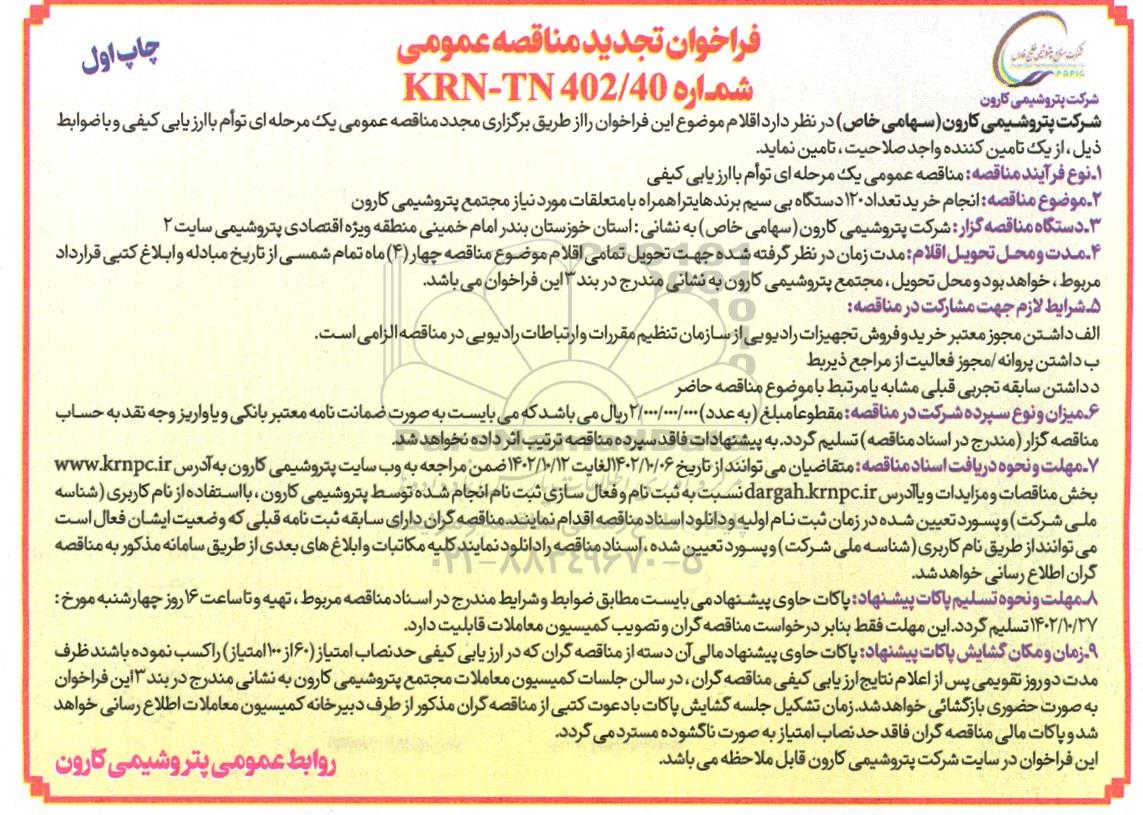 فراخوان تجدید مناقصه عمومی
شماره KRN-TN 402/40
چاپ اول
PGPIC
شرکت پتروشیمی کارون
شرکت پتروشیمی کارون (سهامی خاص) در نظر دارد اقلام موضوع این فراخوان را از طریق برگزاری مجدد مناقصه عمومی یک مرحله ای توأم با ارزیابی کیفی و با ضوابط
ذیل، از یک تامین کننده واجد صلاحیت، تامین نماید.
۱ـ نوع فرآیند مناقصه: مناقصه عمومی یک مرحله ای توأم با ارزیابی کیفی
۲ـ موضوع مناقصه: انجام خرید تعداد ۱۲۰ دستگاه بی سیم برند هایترا همراه با متعلقات مورد نیاز مجتمع پتروشیمی کارون
۳ـ دستگاه مناقصه گزار: شرکت پتروشیمی کارون (سهامی خاص) به نشانی: استان خوزستان بندر امام خمینی منطقه ویژه اقتصادی پتروشیمی سایت ۲
۴ـ مدت و محل تحویل اقلام: مدت زمان در نظر گرفته شده جهت تحویل تمامی اقلام موضوع مناقصه چهار (۴) ماه تمام شمسی از تاریخ مبادله و ابلاغ کتبی قرارداد
مربوط، خواهد بود و محل تحویل، مجتمع پتروشیمی کارون به نشانی مندرج در بند ۳ این فراخوان می باشد.
۵ـ شرایط لازم جهت مشارکت در مناقصه:
الف داشتن مجوز معتبر خرید و فروش تجهیزات رادیویی از سازمان تنظیم مقررات و ارتباطات رادیویی در مناقصه الزامی است.
ب داشتن پروانه/مجوز فعالیت از مراجع ذیربط
د داشتن سابقه تجربی قبلی مشابه یا مرتبط با موضوع مناقصه حاضر
۶ـ میزان و نوع سپرده شرکت در مناقصه: مقطوعاً مبلغ (به عدد) ۲/۰۰۰/۰۰۰/۰۰۰ ریال می باشد که می بایست به صورت ضمانت نامه معتبر بانکی و یا واریز وجه نقد به حساب
مناقصه گزار (مندرج در اسناد مناقصه) تسلیم گردد. به پیشنهادات فاقد سپرده مناقصه ترتیب اثر داده نخواهد شد.
۷ـ مهلت و نحوه دریافت اسناد مناقصه: متقاضیان می توانند از تاریخ ۱۴۰۲/۱۰/۰۶ لغایت ۱۴۰۲/۱۰/۱۲ ضمن مراجعه به وب سایت پتروشیمی کارون به آدرس www.krnpc.ir
بخش مناقصات و مزایدات و یا آدرس dargah.krnpc.ir نسبت به ثبت نام و فعال سازی ثبت نام انجام شده توسط پتروشیمی کارون، با استفاده از نام کاربری (شناسه
ملی شرکت) و پسورد تعیین شده در زمان ثبت نام اولیه و دانلود اسناد مناقصه اقدام نمایند. مناقصه گران دارای سابقه ثبت نامه قبلی که وضعیت ایشان فعال است
می توانند از طریق نام کاربری (شناسه ملی شرکت) و پسورد تعیین شده، اسناد مناقصه را دانلود نمایند کلیه مکاتبات و ابلاغ های بعدی از طریق سامانه مذکور به مناقصه
گران اطلاع رسانی خواهد شد.
۸ـ مهلت و نحوه تسلیم پاکات پیشنهاد: پاکات حاوی پیشنهاد می بایست مطابق ضوابط و شرایط مندرج در اسناد مناقصه مربوط، تهیه و تا ساعت ۱۶ روز چهارشنبه مورخ:
۱۴۰۲/۱۰/۲۷ تسلیم گردد. این مهلت فقط بنابر درخواست مناقصه گران و تصویب کمیسیون معاملات قابلیت دارد.
۹ـ زمان و مکان گشایش پاکات پیشنهاد: پاکات حاوی پیشنهاد مالی آن دسته از مناقصه گران که در ارزیابی کیفی حد نصاب امتیاز (۶۰ از ۱۰۰ امتیاز) را کسب نموده باشند ظرف
مدت دو روز تقویمی پس از اعلام نتایج ارزیابی کیفی مناقصه گران، در سالن جلسات کمیسیون معاملات مجتمع پتروشیمی کارون به نشانی مندرج در بند ۳ این فراخوان
به صورت حضوری بازگشائی خواهد شد. زمان تشکیل جلسه گشایش پاکات با دعوت کتبی از مناقصه گران مذکور از طرف دبیرخانه کمیسیون معاملات اطلاع رسانی خواهد
شد و پاکات مالی مناقصه گران فاقد حد نصاب امتیاز به صورت ناگشوده مسترد می گردد.
این فراخوان در سایت شرکت پتروشیمی کارون قابل ملاحظه می باشد.
روابط عمومی پتروشیمی کارون
۰۲۱-۸۸۳۴۹۶۷۰-۵